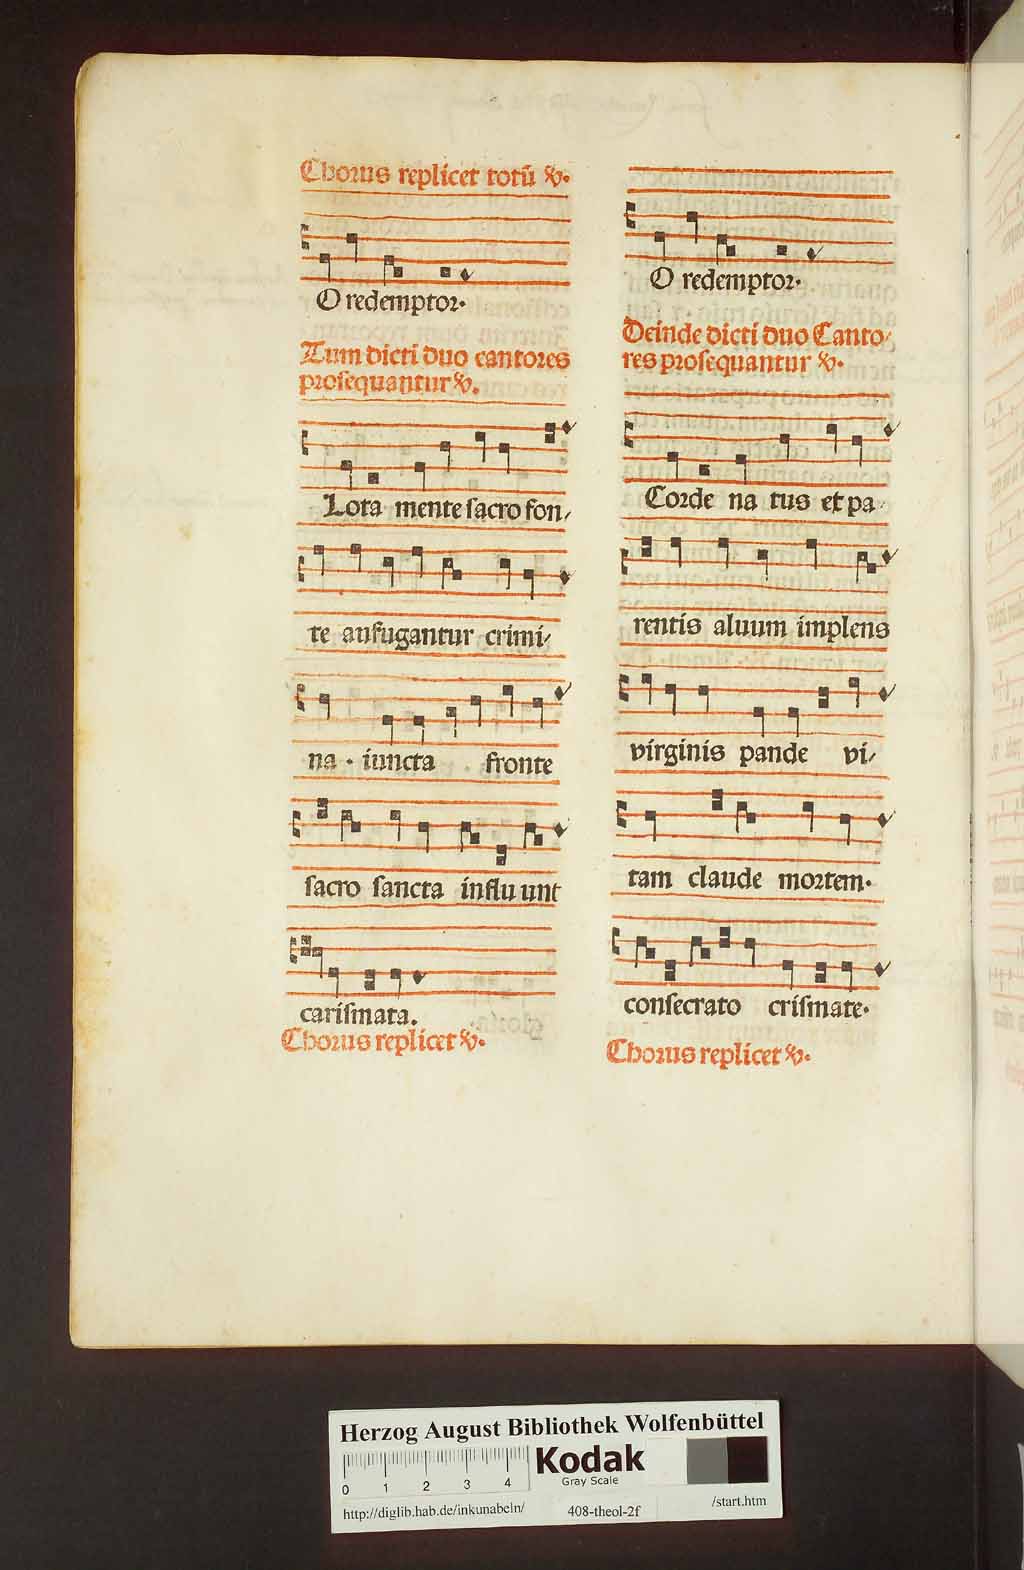 Chorus replicet totū ℣.
O redemptor.
Tum dicti duo cantores
prosequantur ℣.
Lota mente sacro fon/
te aufugantur crimi/
na. iuncta fronte
sacro sancta influunt
carismata.
Chorus replicet ℣.
O redemptor.
Deinde dicti duo Canto/
res prosequantur ℣.
Corde na tus et pa
rentis aluum implens
virginis pande vi/
tam claude mortem.
consecrato crismate.
Chorus replicet ℣.
Herzog August Bibliothek Wolfenbüttel
Kodak
Gray Scale
0 1 2 3 4
http://diglib.hab.de/inkunabeln/ 408-theol-2f /start.htm